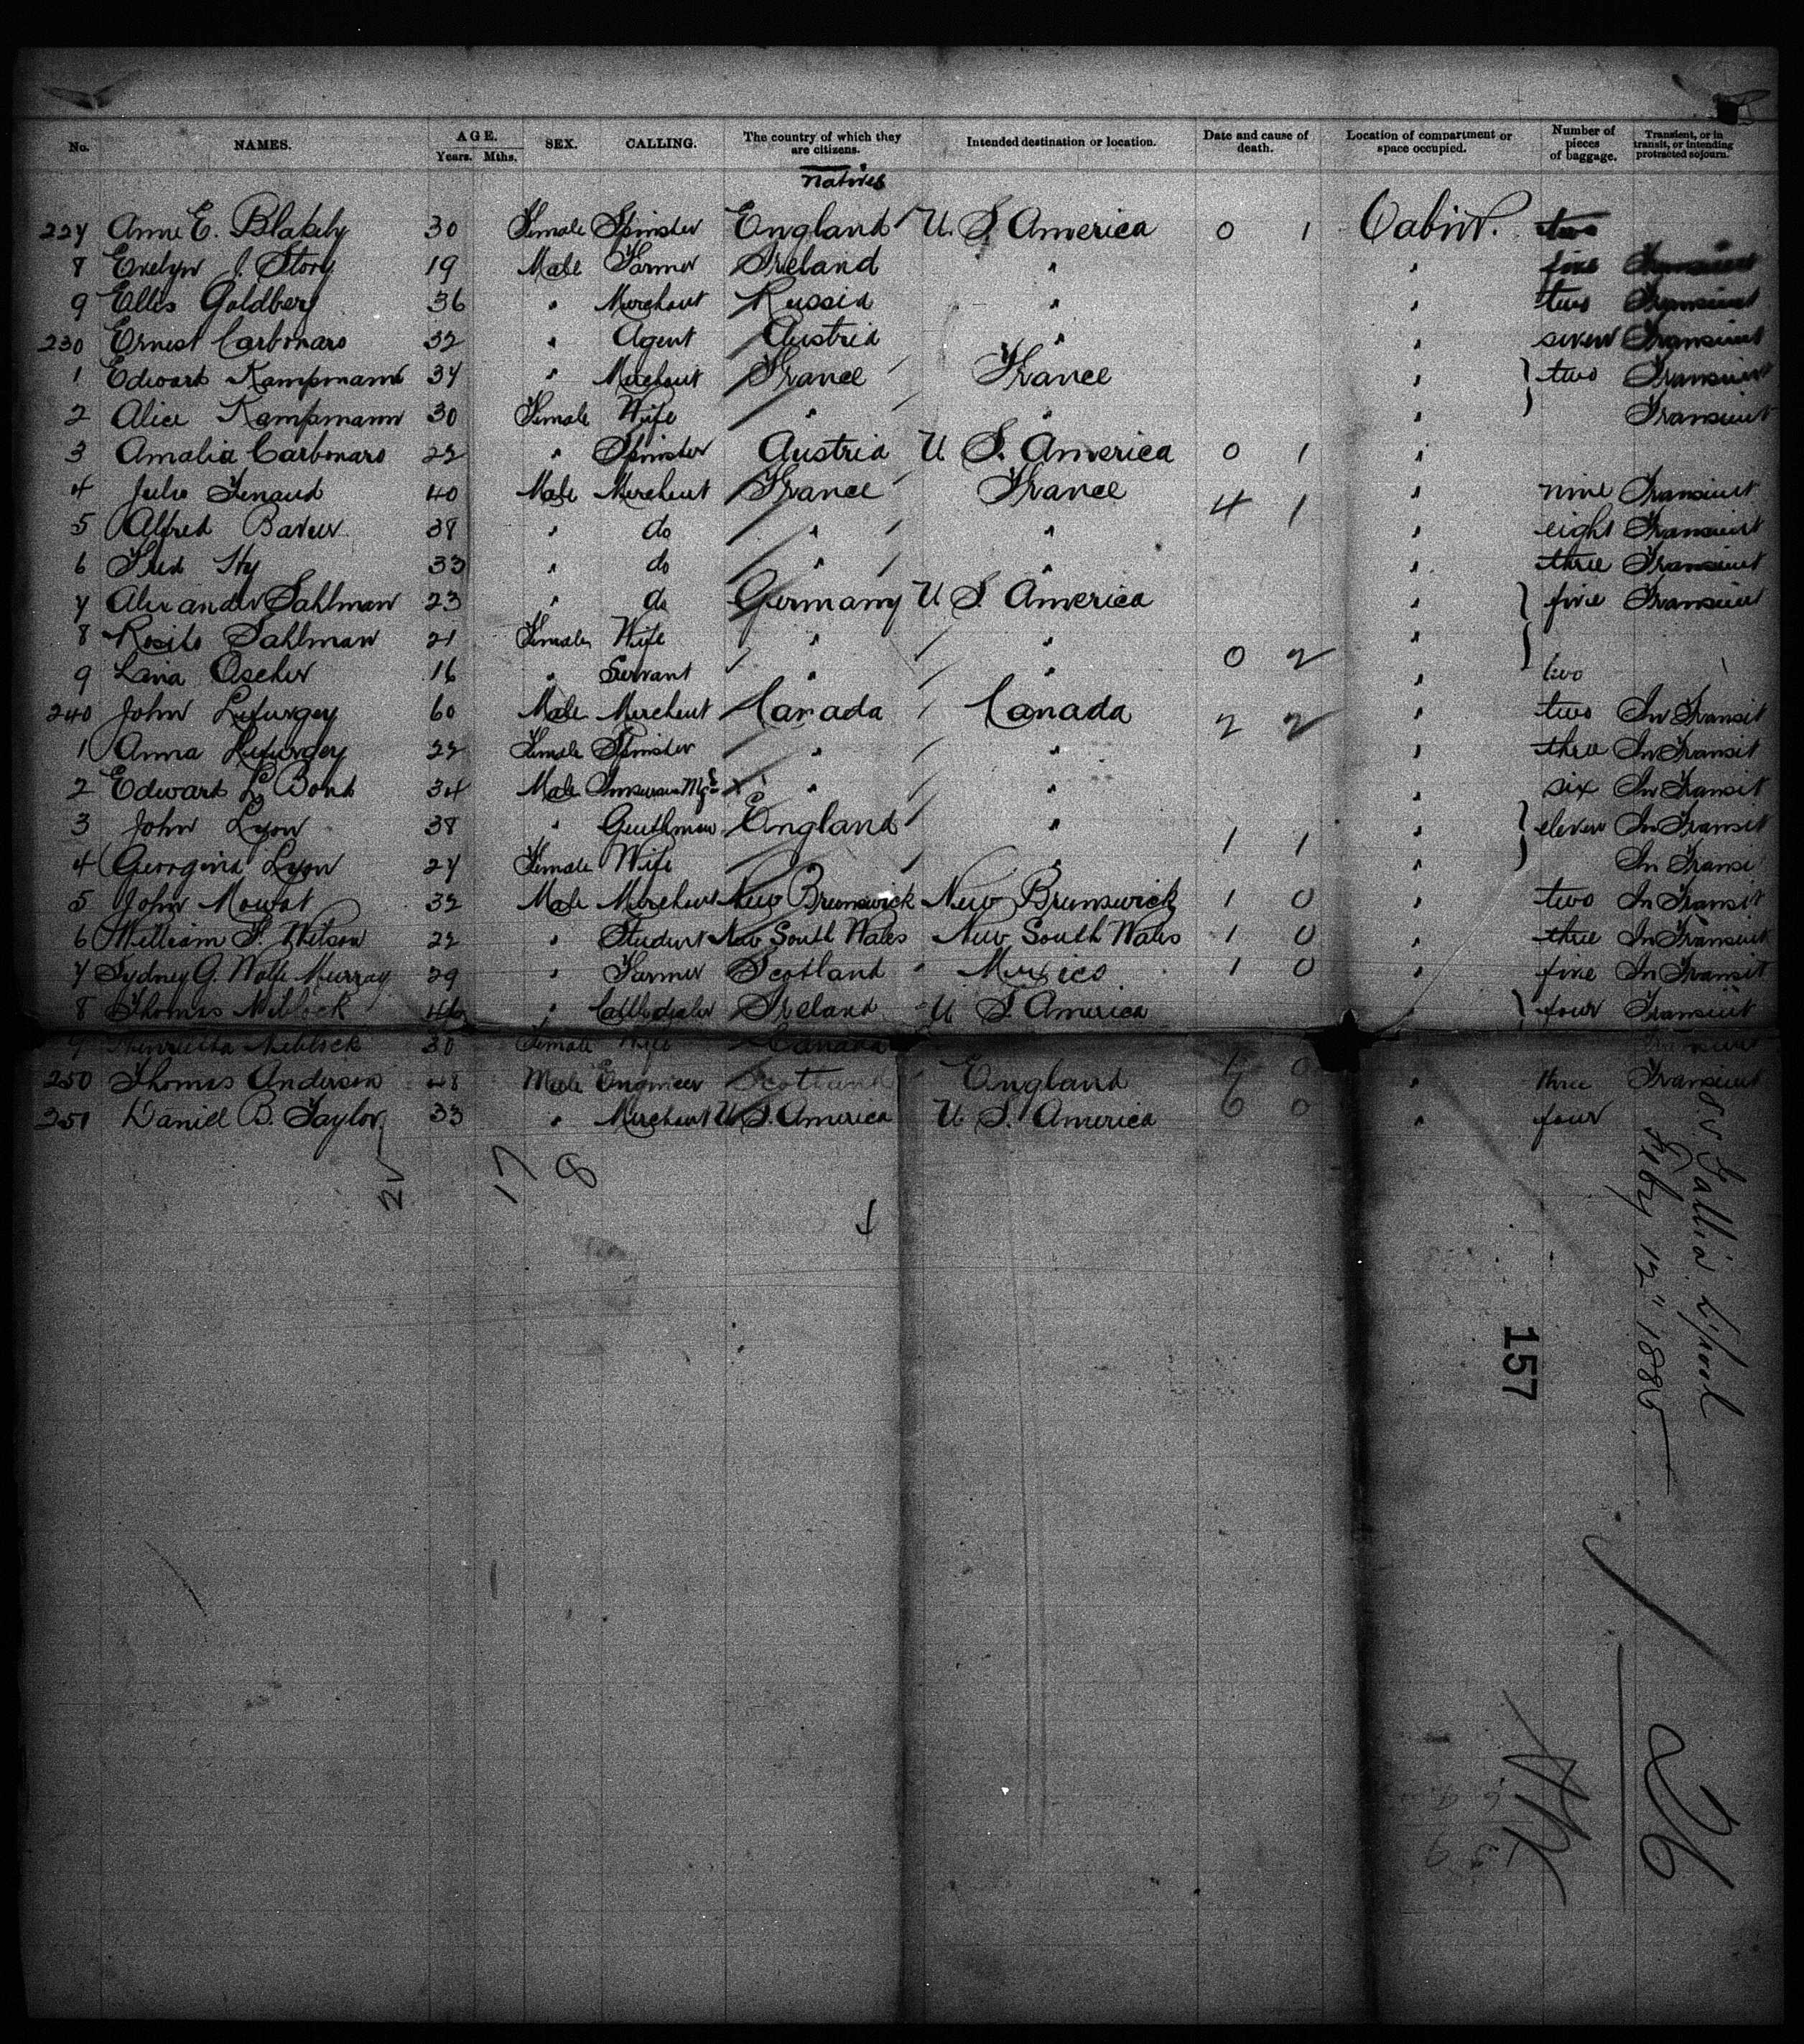 No. NAMES. AGE. Years. Mths. SEX. CALLING. The country of which they are citizens. Intended destination or location. Date and cause of death. Location of compartment or space occupied. Number of pieces of baggage. Transient, or in transit, or intending protracted sojourn.
natives
227 Anne E. Blakely 30 Female Spinster England U. S. America 0 1 Cabin. two
8 Evelyn J. Story 19 Male Farmer Ireland " " five Transient
9 Ellis Goldberg 36 " Merchant Russia " " two Transient
230 Ernest Carbonaro 32 " Agent Austria " " seven Transient
1 Edward Kampmann 34 " Merchant France France " two Transient
2 Alice Kampmann 30 Female Wife " " " Transient
3 Amalia Carbonaro 22 " Spinster Austria U. S. America 0 1 "
4 Male Merchant France France 4 1 " nine Transient
40
5 Alfred 38 " do " " " eight Transient
6 Fred 33 " do " " " three Transient
7 Alexander Sahlman 23 " do Germany U S. America " five Transient
8 Sahlman 21 Female Wife " " "
9 Ascher 16 " Servant " " 0 2 " two
240 John Lefurgey 60 Male Merchant Canada Canada 2 2 " two In Transit
1 Anna Lefurgey 22 Female Spinster " " " three In Transit
2 Edward L. Bond 34 Male " " " six In Transit
3 John Lyon 38 " Gentleman England " 1 1 " eleven In Transit
4 Georgina Lyon 27 Female Wife " " In Transi
5 John Mowat 32 Male Merchant New Brunswick New Brunswick 1 0 " two In Transit
6 William 22 " Student New South Wales New South Wales 1 0 " three In Transit
7 Sydney G. Wolfe Murray 29 " Farmer Scotland Mexico 1 0 " five In Transit
8 Thomas Niblock " Cattledealer Ireland U S. America four Transient
9 Henrietta Niblock 30 Female Wife Canada
250 Thomas Anderson 48 Male Engineer Scotland England 0 " three Transient
251 Daniel B. Taylor 33 " Merchant U. S. America U. S. America 6 0 " four
17 8
S.S. Gallia L'pool
Feby 12" 1885
157
26